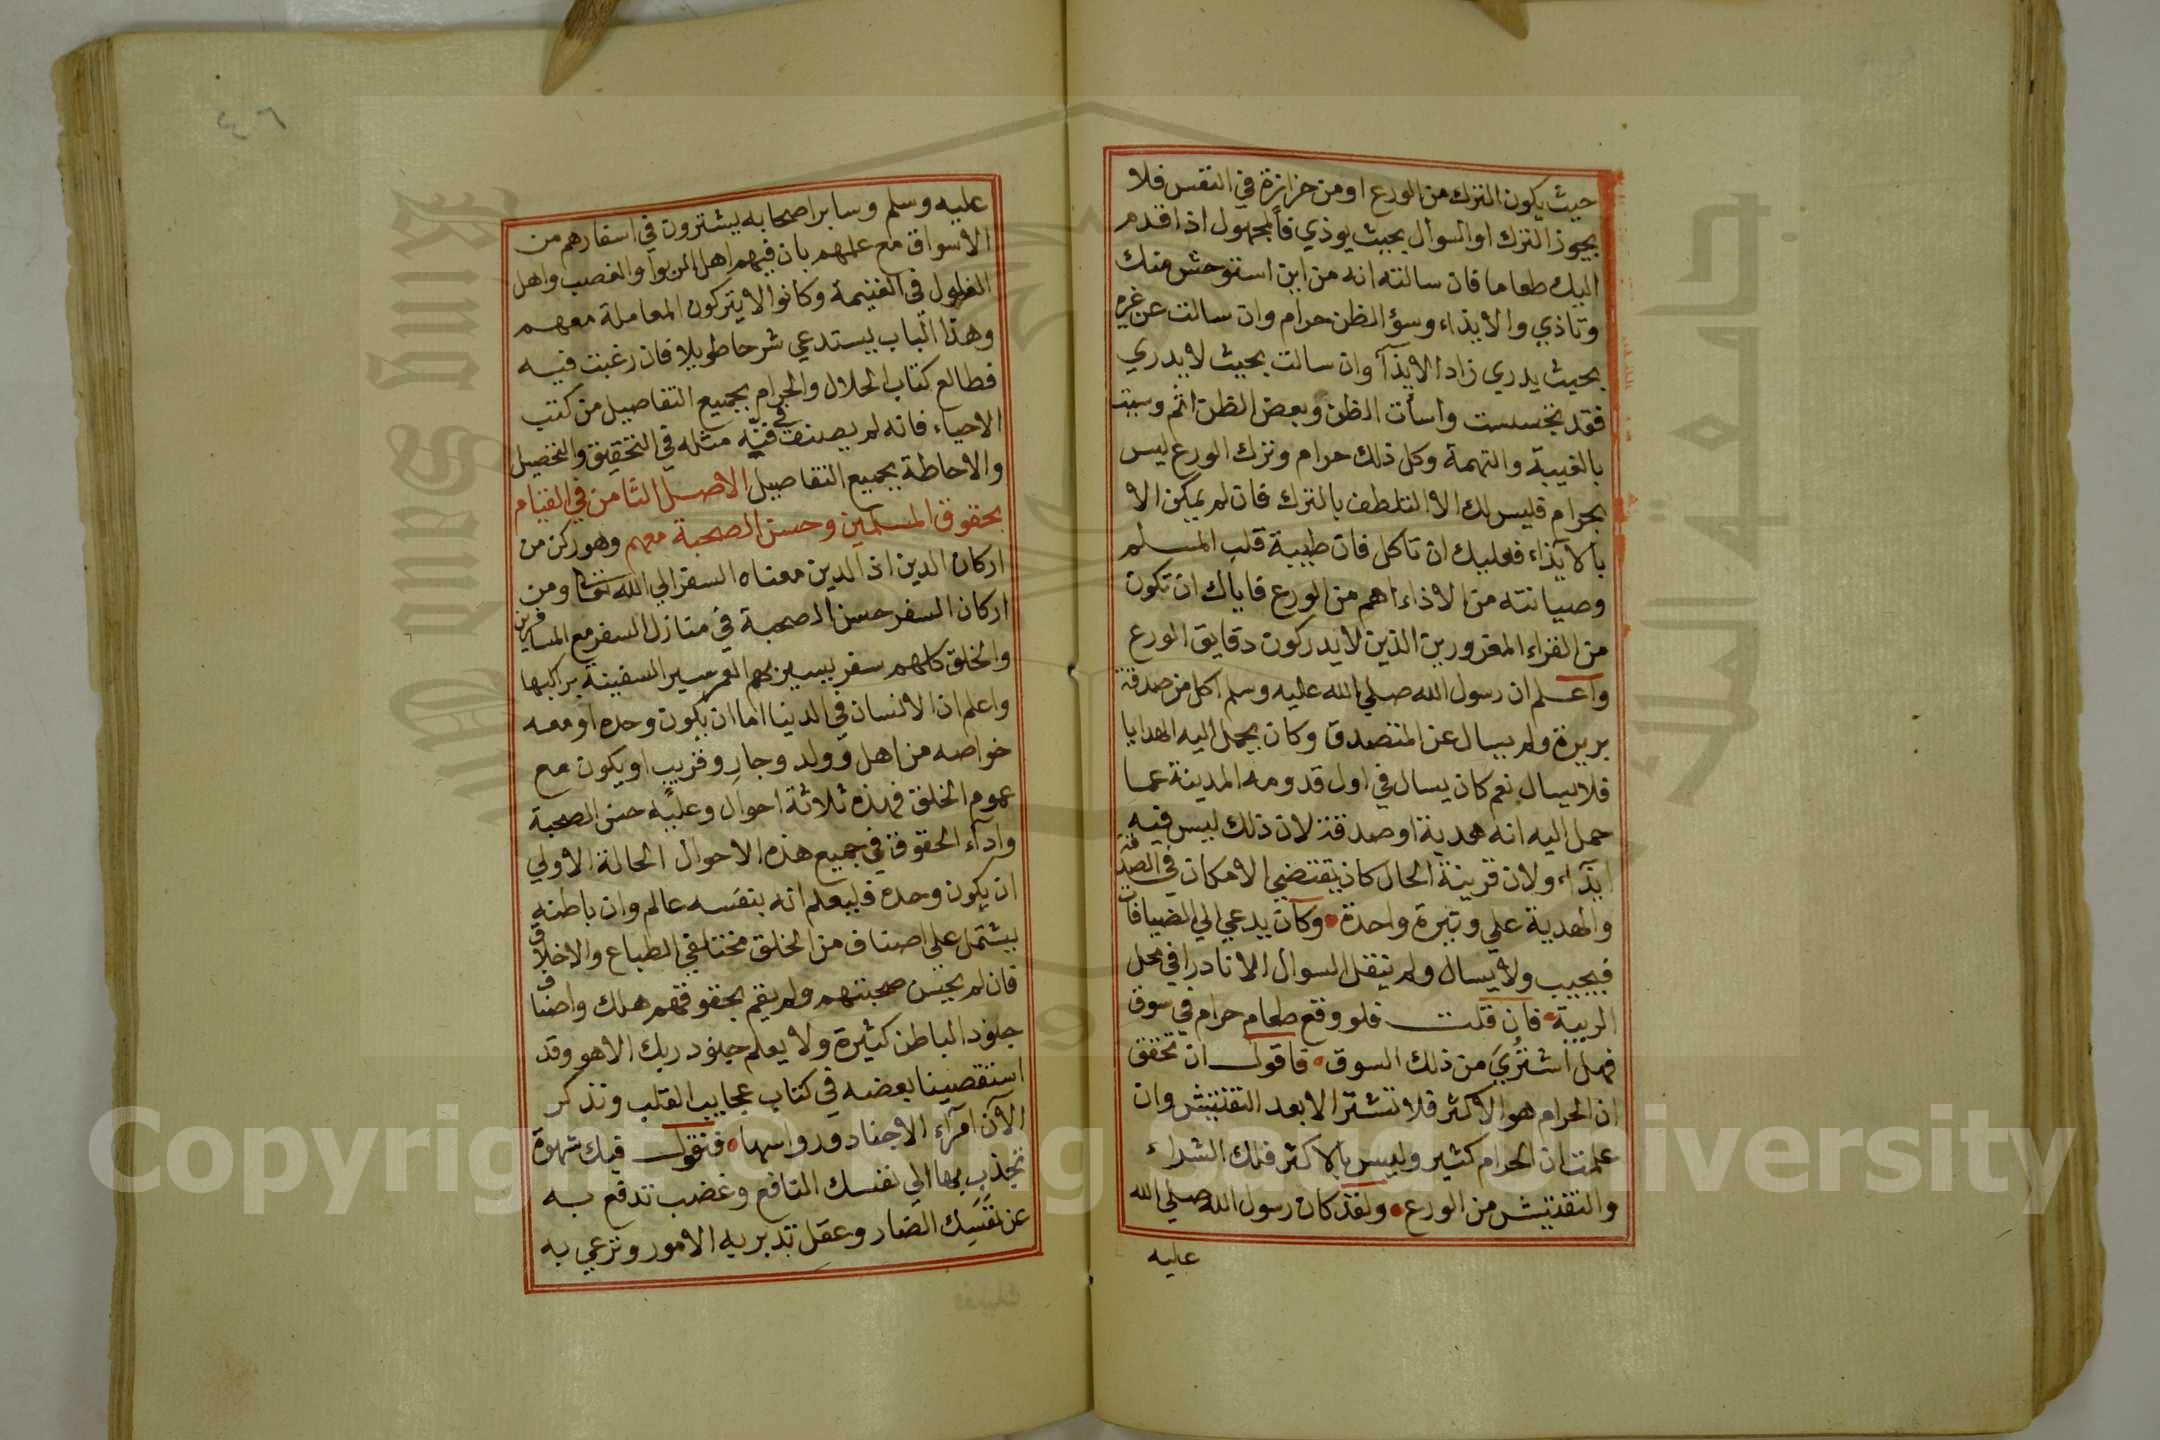 حيث يكون الترك من الورع او من حزازة في النفس فلا
يجوز الترك او السوال بحيث يوذي فالمجهول اذا قدم
اليك طعاما فان سالته انه من اين استوحش منك
وتاذي والايذاء وسؤ الظن حرام وان سالت عن غيره
بحيث يدري زاد الايذآ وان سالت بحيث لا يدري
فقد تجسست واسأت الظن وبعض الظن اثم
بالغيبة والتهمة وكل ذلك حرام وترك الورع ليس
بحرام فليس لك الا التلطف بالترك فان لم يمكن الا
بالايذاء فعليك ان تاكل فان طيبة قلب المسلم
وصيانته من الاذاء اهم من الورع فاياك ان تكون
من القراء المغرورين الذين لا يدركون دقايق الورع
واعلم ان رسول الله صلي الله عليه وسلم اكل من صدقة
بريرة ولم يسال عن المتصدق وكان يحمل اليه الهدايا
فلا يسال نعم كان يسال في اول قدومه المدينة عما
حمل اليه انه هدية او صدقة لان ذلك ليس فيه
ايذآء ولان قرينة الحال كان تقتضي الامكان في الصدقة
والهدية علي وتيرة واحدة وكان يدعي الي الضيافات
فيجيب ولا يسال ولم ينقل السوال الا نادرا في محل
الريبة فان قلت فلو وقع طعام حرام في سوق
فهل اشتري من ذلك السوق فاقول ان تحقق
ان الحرام هو الاكثر فلا تشتر الا بعد التفتيش وان
علمت ان الحرام كثير وليس بالاكثر فلك الشراء
والتفتيش من الورع ولقد كان رسول الله صلي الله
عليه
عليه وسلم وساير اصحابه يشترون في اسفارهم من
الاسواق مع علمهم بان فيهم اهل الربوا والغصب واهل
الغلول في الغنيمة وكانوا لا يتركون المعاملة معهم
وهذا الباب يستدعي شرحا طويلا فان رغبت فيه
فطالع كتاب الحلال والحرام بجميع التفاصيل من كتب
الاحياء فانه لم يصنف في فنه مثله في التحقيق والتحصيل
والاحاطة بجميع التفاصيل الاصل الثامن في القيام
بحقوق المسلمين وحسن الصحبة معهم وهو ركن من
اركان الدين اذ الدين معناه السفر الي الله تعا ومن
اركان السفر حسن الصحبة في منازل السفر مع المسافرين
والخلق كلهم سفر يسير بهم العمر سير السفينة براكبها
واعلم ان الانسان في الدنيا اما ان يكون وحده او معه
خواصه من اهل وولد وجار وقريب او يكون مع
عموم الخلق فهذه ثلاثة احوال وعليه حسن الصحبة
وادآء الحقوق في جميع هذه الاحوال الحالة الاولي
ان يكون وحده فليعلم انه بنفسه عالم وان باطنه
يشتمل علي اصناف من الخلق مختلفي الطباع والاخلاق
فان لم يحسن صحبتهم ولم يقم بحقوقهم هلك واصناف
جنود الباطن كثيرة ولا يعلم جنود ربك الا هو وقد
استقصينا بعضه في كتاب عجايب القلب ونذكر
الآن امرآء الاجناد وروأسها فنقول فيك شهوة
تجذب بها الي نفسك النافع وغضب تدفع به
عن نفسك الضار وعقل تدبر به الامور وترعي به
Copyright © King Saud University
جامعة الملك
King Saud